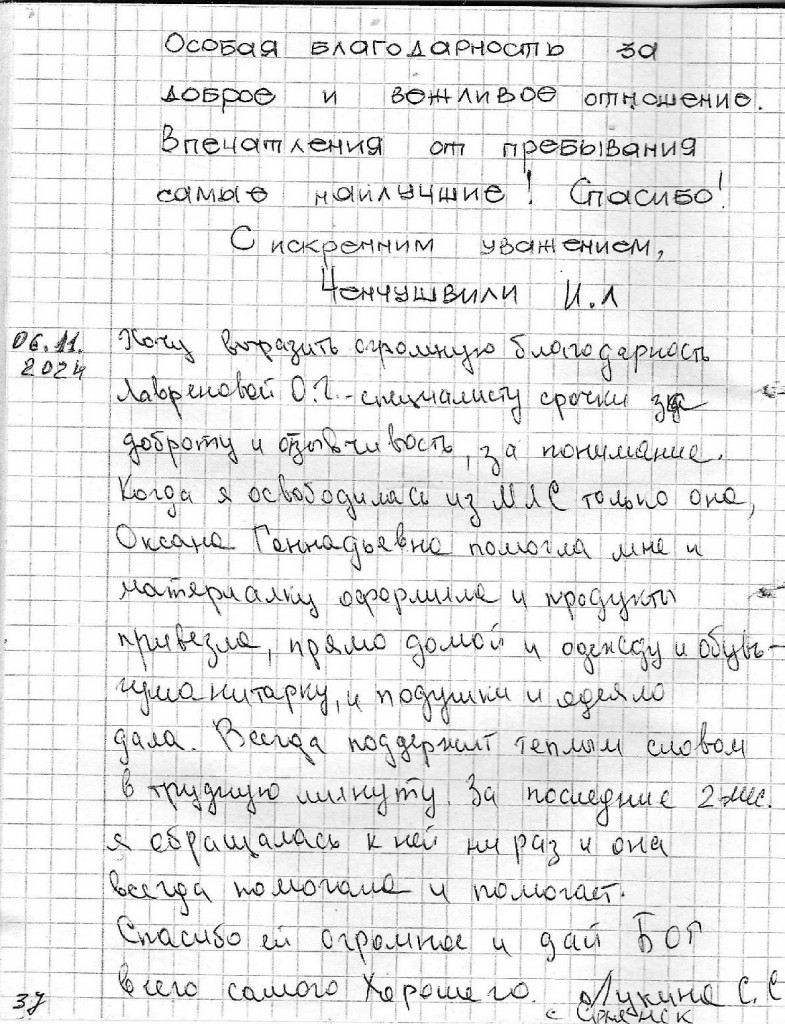 Особая благодарность за
доброе и вежливое отношение.
Впечатления от пребывания
самые наилучшие! Спасибо!
С искренним уважением,
Ченчушвили И.Л
06.11.
2024
Хочу выразить огромную благодарность
Лавреновой О.Г. - специалисту срочки за
доброту и отзывчивость, за понимание.
Когда я освободилась из МЛС только она,
Оксана Геннадьевна помогла мне и
материалку оформила и продукты
привезла, прямо домой и одежду и обувь -
гуманитарку, и подушки и одеяло
дала. Всегда поддержит теплым словом
в трудную минуту. За последние 2 мес.
я обращалась к ней ни раз и она
всегда помогала и помогает.
Спасибо ей огромное и дай БОГ
всего самого Хорошего. Лукина С. С
37